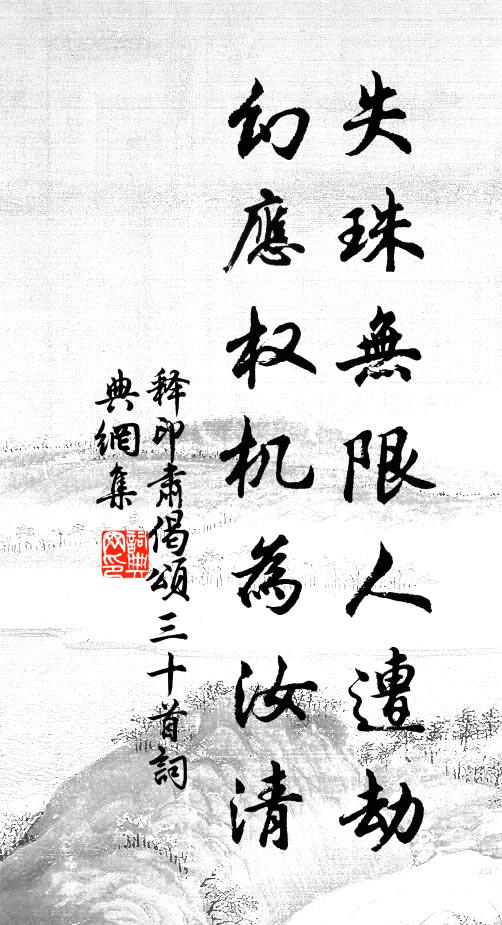 失珠無限人遭劫
幻應权机為汝清
释印肅偈頌三十首詞
典網集
詞典网印